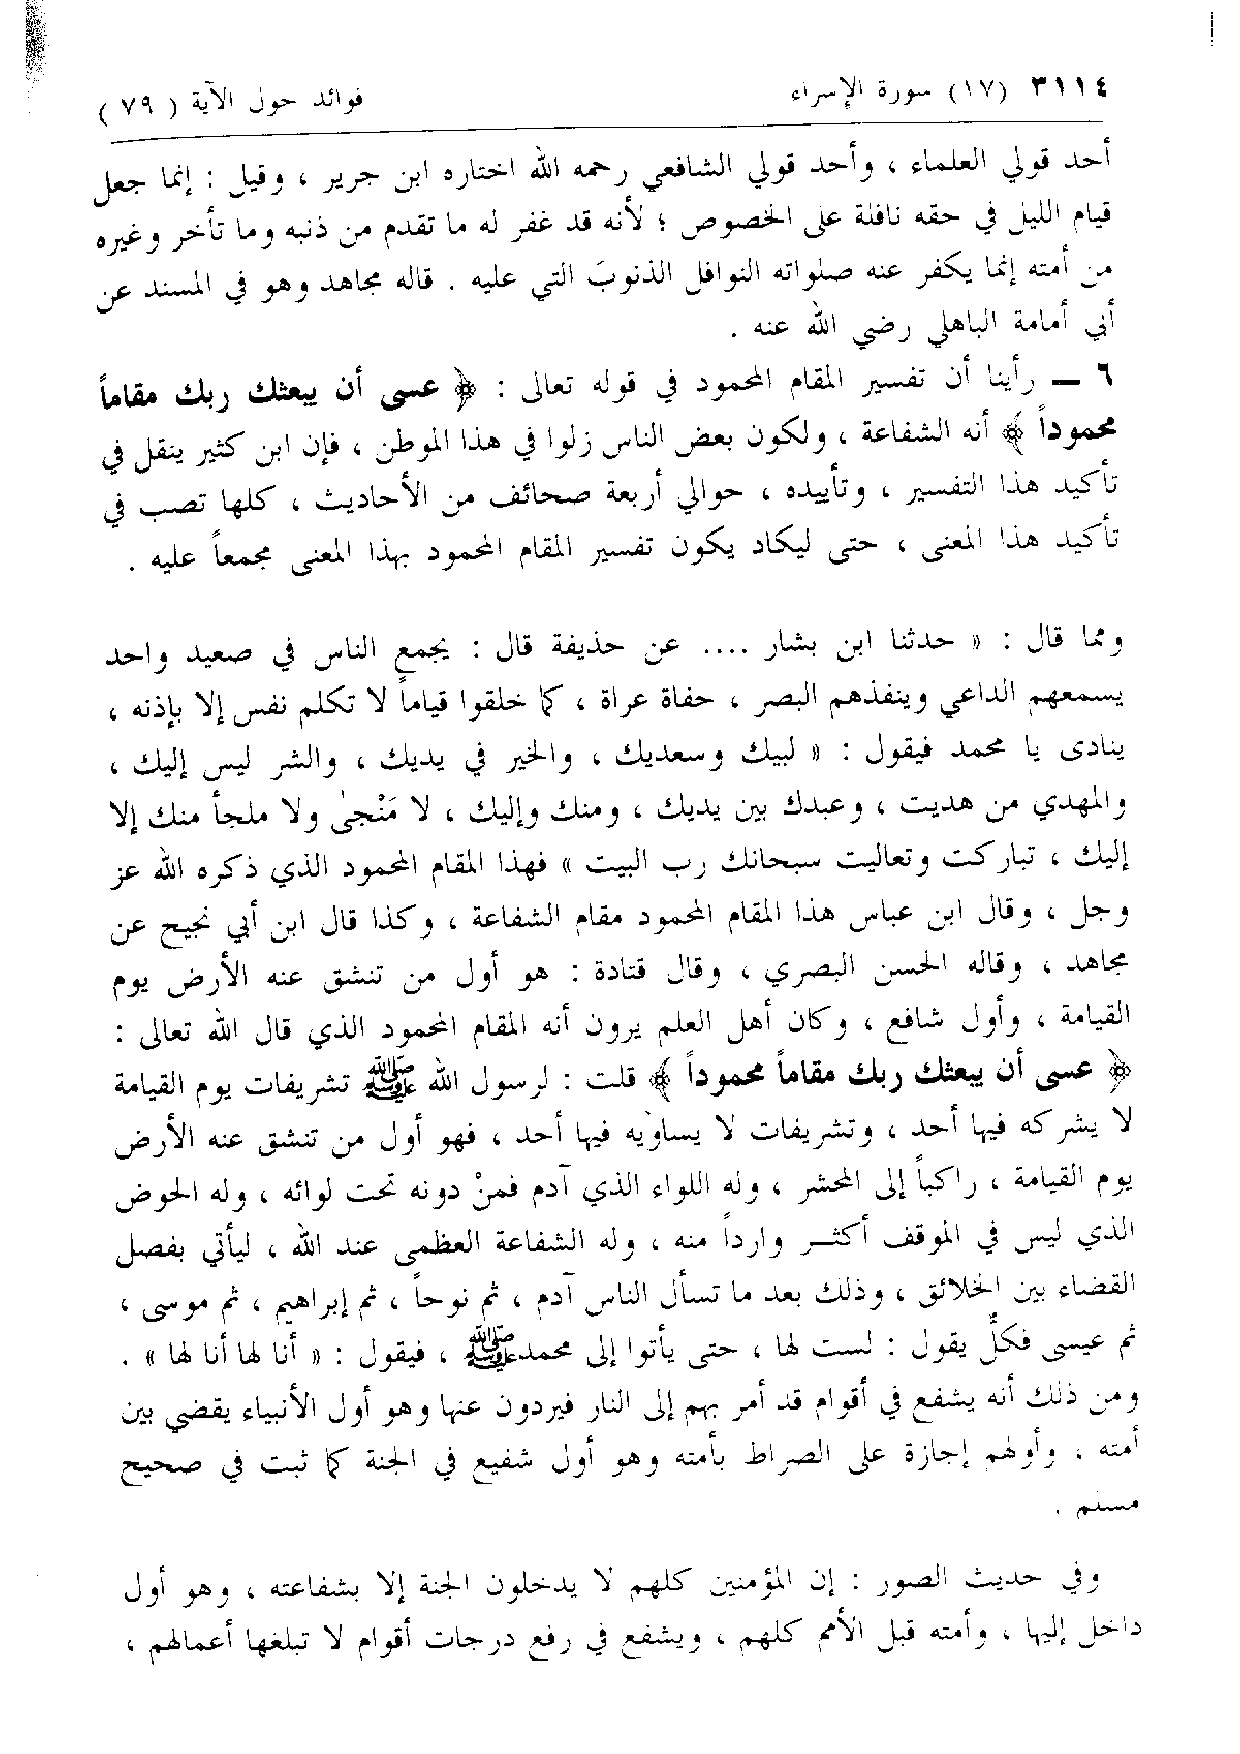 ٣١١٤ (١٧) سورة الإسراء فوائد حول الآية ( ٧٩ )
أحد قولي العلماء ، وأحد قولي الشافعي رحمه الله اختاره ابن جرير ، وقيل : إنما جعل
قيام الليل في حقه نافلة على الخصوص ؛ لأنه قد غفر له ما تقدم من ذنبه وما تأخر وغيره
من أمته إنما يكفر عنه صلواته النوافل الذنوبَ التي عليه . قاله مجاهد وهو في المسند عن
أبي أمامة الباهلي رضي الله عنه .
٦ – رأينا أن تفسير المقام المحمود في قوله تعالى : ﴿ عسى أن يبعثك ربك مقاماً
محموداً ﴾ أنه الشفاعة ، ولكون بعض الناس زلوا في هذا الموطن ، فإن ابن كثير ينقل في
تأكيد هذا التفسير ، وتأييده ، حوالي أربعة صحائف من الأحاديث ، كلها تصب في
تأكيد هذا المعنى ، حتى ليكاد يكون تفسير المقام المحمود بهذا المعنى مجمعاً عليه .
ومما قال : « حدثنا ابن بشار .... عن حذيفة قال : يجمع الناس في صعيد واحد
يسمعهم الداعي وينفذهم البصر ، حفاة عراة ، كما خلقوا قياماً لا تكلم نفس إلا بإذنه ،
ينادى يا محمد فيقول : « لبيك وسعديك ، والخير في يديك ، والشر ليس إليك ،
والمهدي من هديت ، وعبدك بين يديك ، ومنك وإليك ، لا مَنْجىٰ ولا ملجأ منك إلا
إليك ، تباركت وتعاليت سبحانك رب البيت » فهذا المقام المحمود الذي ذكره الله عز
وجل ، وقال ابن عباس هذا المقام المحمود مقام الشفاعة ، وكذا قال ابن أبي نجيح عن
مجاهد ، وقاله الحسن البصري ، وقال قتادة : هو أول من تنشق عنه الأرض يوم
القيامة ، وأول شافع ، وكان أهل العلم يرون أنه المقام المحمود الذي قال الله تعالى :
﴿ عسى أن يبعثك ربك مقاماً محموداً ﴾ قلت : لرسول الله ﷺ تشريفات يوم القيامة
لا يشركه فيها أحد ، وتشريفات لا يساويه فيها أحد ، فهو أول من تنشق عنه الأرض
يوم القيامة ، راكباً إلى المحشر ، وله اللواء الذي آدم فمنْ دونه تحت لوائه ، وله الحوض
الذي ليس في الموقف أكثر وارداً منه ، وله الشفاعة العظمى عند الله ، ليأتي بفصل
القضاء بين الخلائق ، وذلك بعد ما تسأل الناس آدم ، ثم نوحاً ، ثم إبراهيم ، ثم موسى ،
ثم عيسى فكلٌّ يقول : لست لها ، حتى يأتوا إلى محمد ﷺ ، فيقول : « أنا لها أنا لها » .
ومن ذلك أنه يشفع في أقوام قد أمر بهم إلى النار فيردون عنها وهو أول الأنبياء يقضي بين
أمته ، وأولهم إجازة على الصراط بأمته وهو أول شفيع في الجنة كما ثبت في صحيح
مسلم .
وفي حديث الصور : إن المؤمنين كلهم لا يدخلون الجنة إلا بشفاعته ، وهو أول
داخل إليها ، وأمته قبل الأمم كلهم ، ويشفع في رفع درجات أقوام لا تبلغها أعمالهم ،